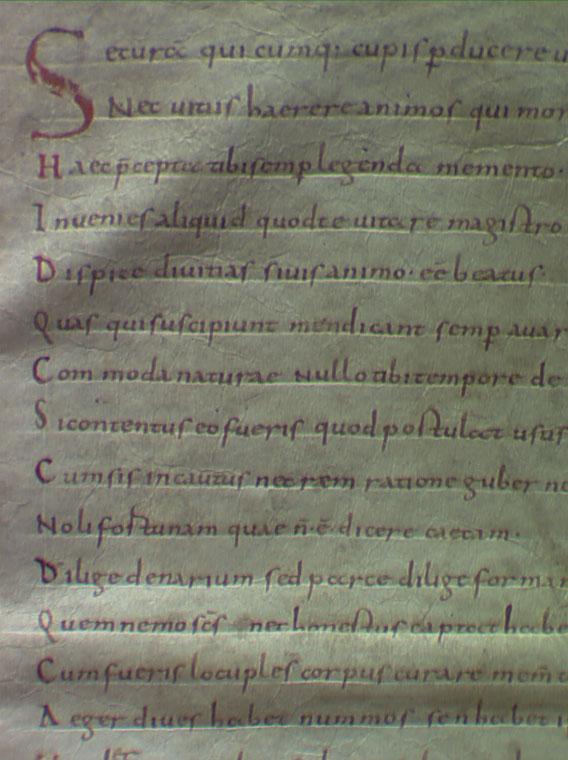 Securā qui cumq: cupis pducere u
Nec uitiis haerere animos qui mor
Haec p̄cepta tibi semp legenda memento·
Inuenies aliquid quod te uitare magistro
Dispice diuitias si uis animo· eē beatus·
Quas qui suscipiunt mendicant semp auar
Commoda naturae nullo tibi tempore de
Si contentus eo fueris quod postulat usus
Cum sis incautus nec rem ratione guberna
Noli fortunam quae n̄·ē· dicere caecam·
Dilige denarium sed parce dilige formam
Quem nemo sc̄s nec honestus captat habe
Cum fueris locuples corpus curare mem̄
Aeger diues habet nummos se n habet i